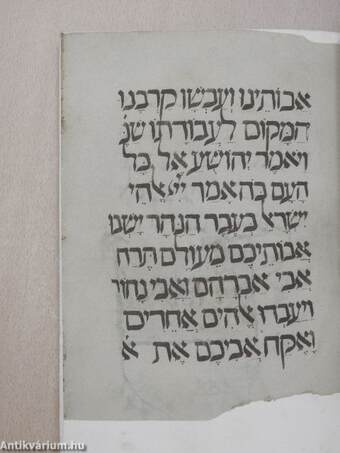 אבותינו ועכשו קרבנו
המקום לעבודתו שנ׳
ויאמר יהושע אל כל
העם כה אמר ייי אלהי
ישראל בעבר הנהר ישבו
אבותיכם מעולם תרח
אבי אברהם ואבי נחור
ויעבדו אלהים אחרים
ואקח אביכם את א
Antikvárium.hu